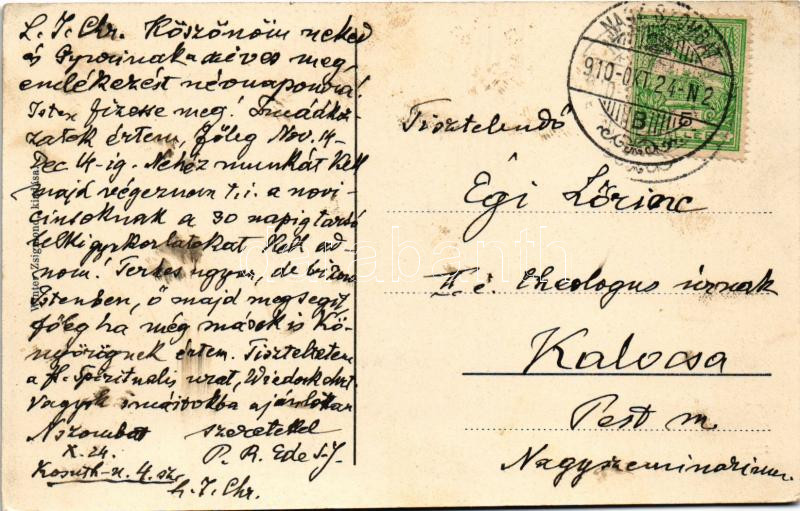 L. J. Chr. Köszönöm neked
és Gyurinak szíves meg-
emlékezést névnapomra!
Isten fizesse meg! Imádkoz-
zatok értem, főleg Nov. 14-
Dec 14-ig. Nehéz munkát kell
majd végeznem t. i. a novi-
ciusoknak a 30 napig tartó
lelkigyakorlatokat kell ad-
nom! Terhes ugyan, de bízom
Istenben, ő majd megsegít
főleg ha még mások is kö-
nyörögnek értem. Tiszteltetem
a H. Spirituális urat,
Vagyok imáitokba ajánlottan
N.szombat szeretettel
X. 24. P. R. Ede S. J.
Kossuth-u. 4. sz.
L. J. Chr.
Winter Zsigmond kiadása
NAGYSZOMBAT
910-OKT. 24-N2
B
Tisztelendő
Égi Lőrinc
II. é. theologus úrnak
Kalocsa
Pest m.
Nagyszeminárium.
darabanth